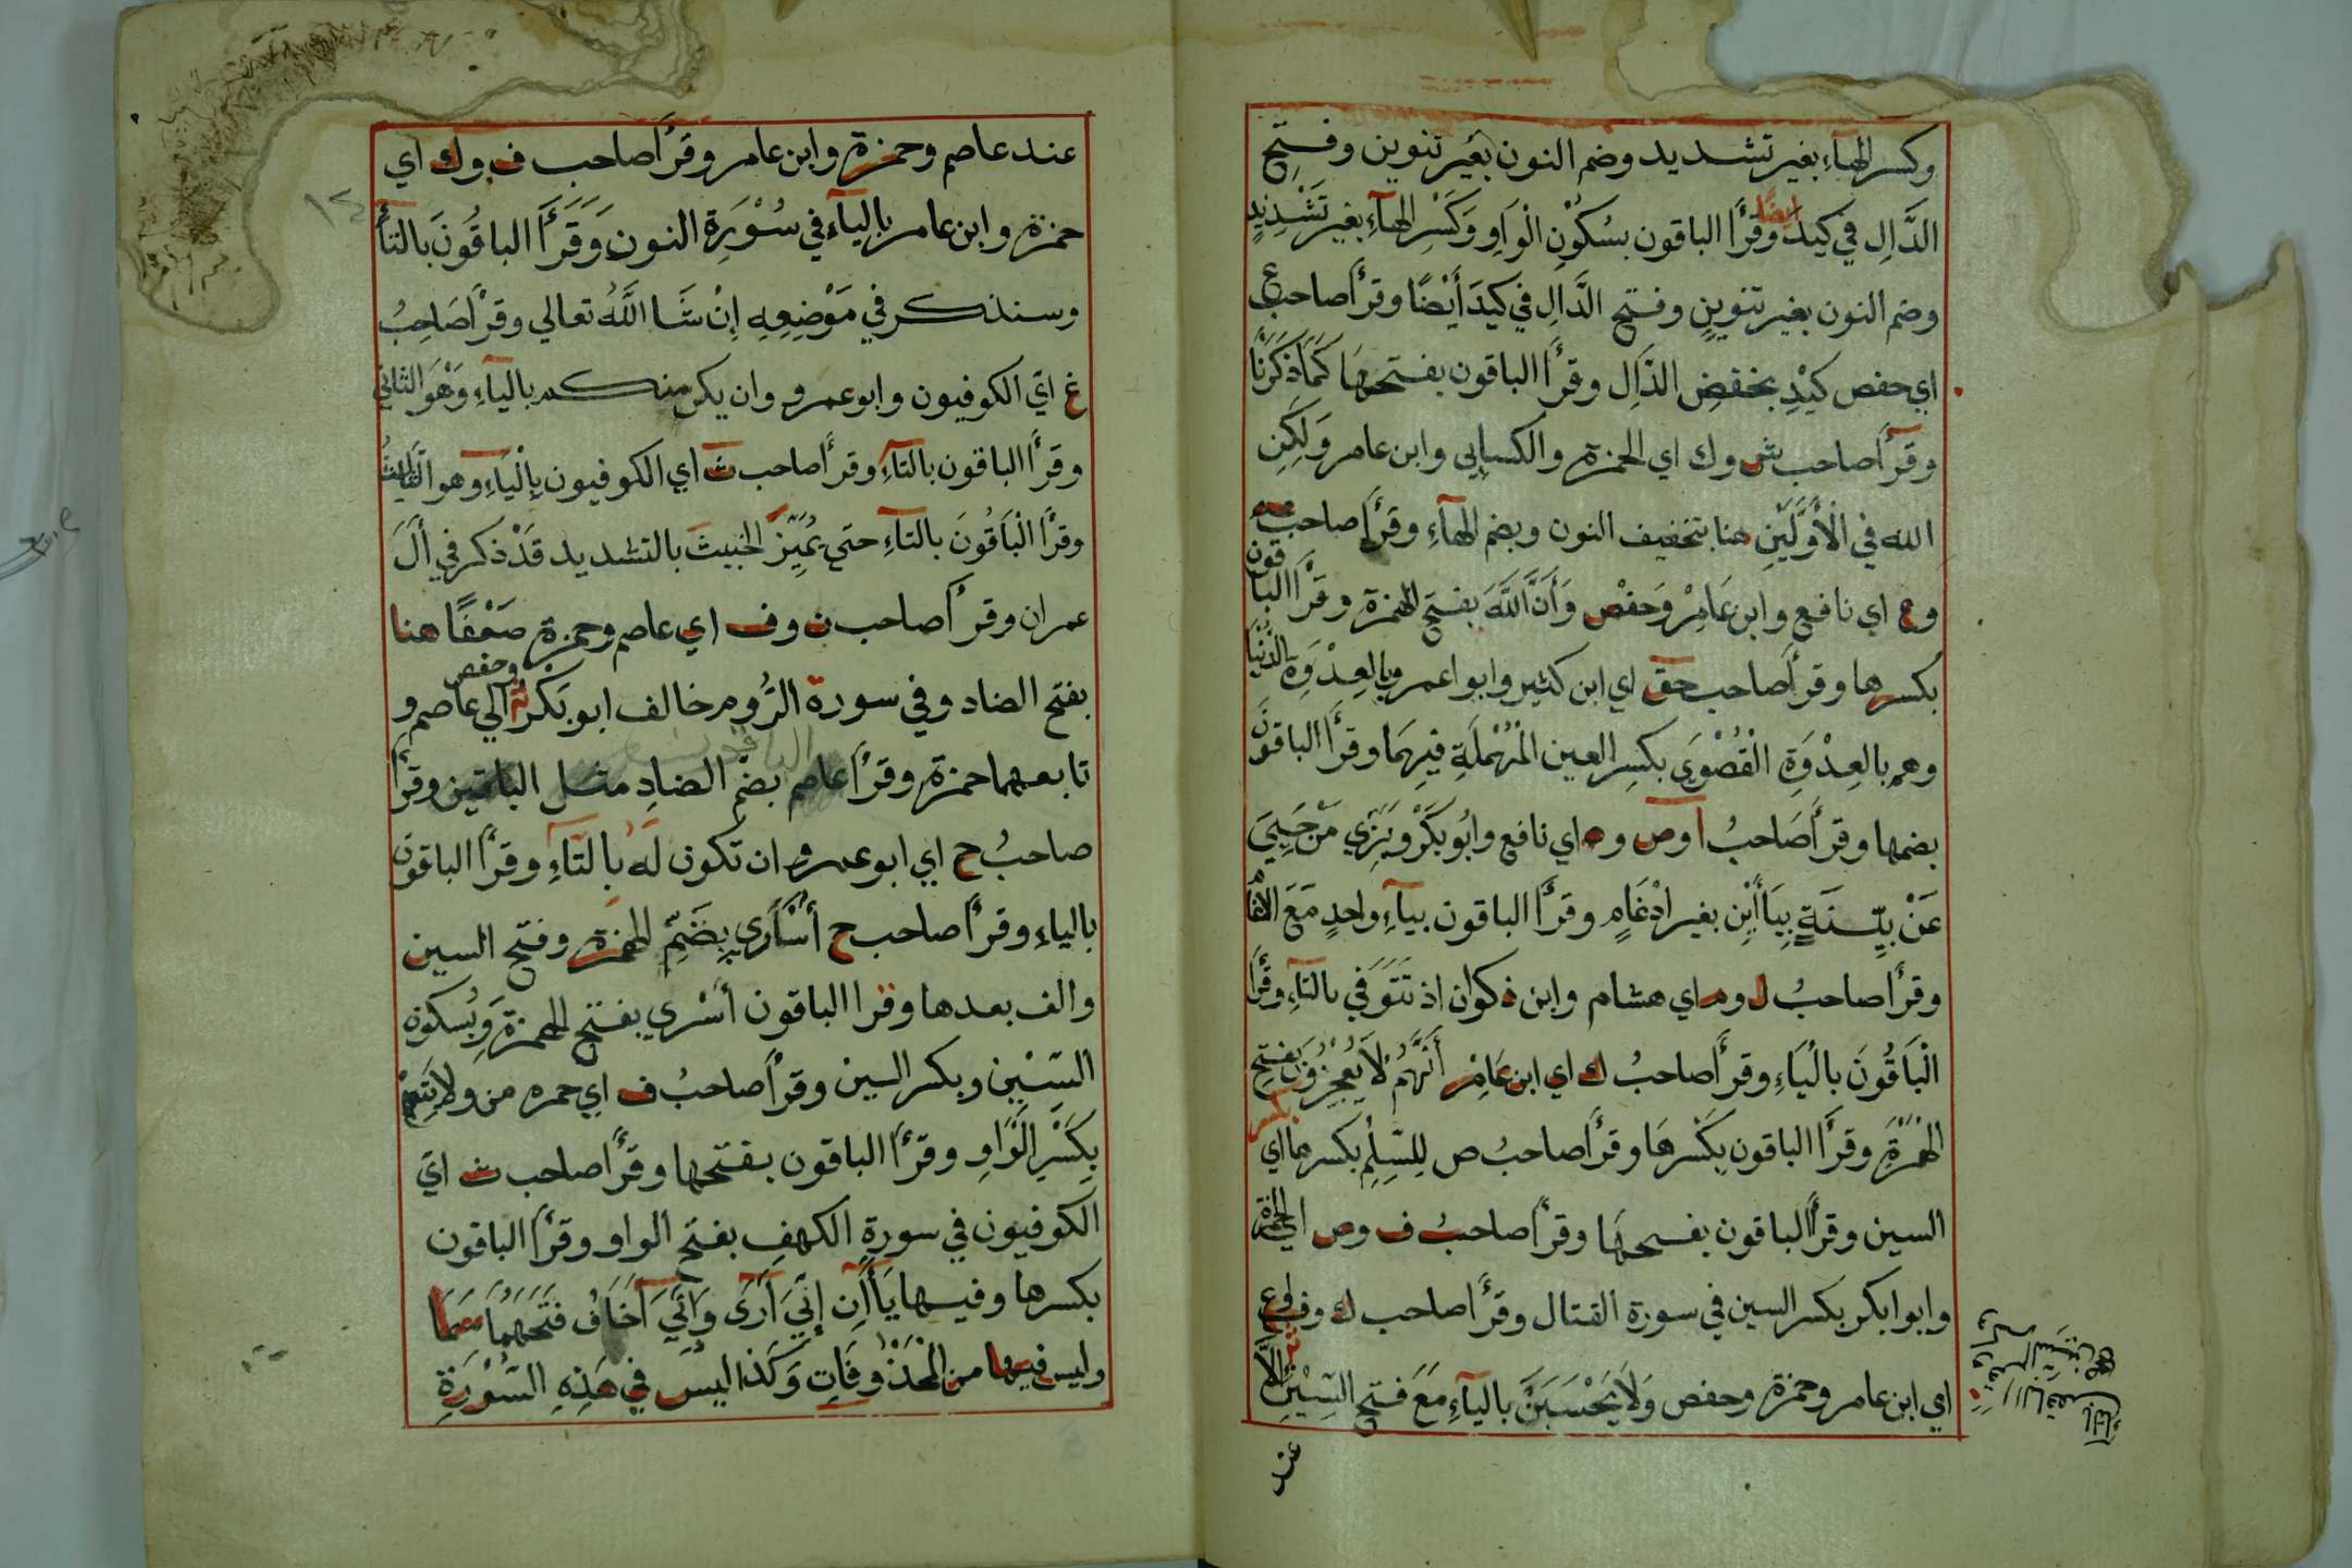 وكسر الهآءِ بغير تشديد وضم النون بغير تنوين وفتح
الدَّالِ في كيدَ ايضًا وقَرَأَ الباقون بسُكُوْنِ الْوَاوِ وَكَسْرِ الهآءِ بغير تَشْدِيْدٍ
وضم النون بغير تنوينٍ وفتح الدَّالِ في كيدَ أَيْضًا وقرأ صاحب ع
اي حفص كيْدِ بخفضِ الدَّالِ وقرأَ الباقون بفتحهَا كَمَا ذَكَرْنَا
وقرأ صاحب ش وك اي الحمزة والكسايى وابن عامر وَلَكِنِ
الله في الْأَوَّلَيْنِ هنا بتخفيف النون وبضم الهآءِ وقرأ صاحب عم
وع اي نافع وابن عَامِرْ وَحفص وَأَنَّ اللَّهَ بفتح الهمزة وقرأ الباقون
بكسرها وقرأ صاحب حق اي ابن كثير وابوا عمرو بالعِدْوَةِ الدُّنْيَا
وهم بالعِدْوَةِ الْقُصْوَي بكسر العين الْمُهْمَلَةِ فيهَما وقرأَ الباقونَ
بضمها وقرأ صَاحبُ ا وص وه اي نافع وابُو بَكَرْ وبَزِي مَنْ حَيِيَ
عَنْ بيِّنَةٍ بيَاأَيْنِ بغير ادْغَامٍ وقرأَ الباقون بيآءٍ واحدٍ مَعَ الادْغام
وقرأ صاحبُ ل وم اي هشام وابن ذكوان اذ تَتَوَفي بالتآءِ وقَرَأَ
الْبَاقُونَ بالْيَاءِ وقرأَ صاحبُ ك اي ابن عَامِرْ أَنَّهُمْ لَا يُعْجِزُوْنَ بَفتحِ
الهْمْزَةِ وقرأَ الباقون بكَسْرهَا وقرأ صاحبُ ص لِلسِّلِمْ بكسر بكسرها اي
السين وقرأ الباقون بفتحهَا وقرأ صاحبُ ف وص اي الحمزة
وابوا بكر بكسر السين في سورة القتال وقرأ اصاحب ك وف وع
اي ابن عامر وحمزة وحفص وَلَا يَحْسَبَنَّ باليآءِ مَعَ فتحِ السِّيْنِ إلاَّ
عند
عند عاصم وحمزة وابن عامر وقرأ صاحب ف وك اي
حمزة وابن عامر باليآءِ في سُوْرَةِ النون وَقَرَأَ الباقُونَ بالتآءِ
وسنذكر في مَوْضِعِهِ إنْ شَا اللَّهُ تعالي وقرأ صَاحِبُ
غ اي الكوفيون وابو عمرو وان يكن منكم باليآءِ وَهْوَ الثاني
وقرأ الباقون بالتآءِ وقرأ صاحب ث اي الكوفيون بالْيَآءِ وهو الثَّالِثُ
وقرأ الْبَاقُونَ بالتآءِ حتى يُمَيِّزَ الخبيثَ بالتشديد قَدْ ذكر في أَلِ
عمران وقرأ صاحب ن وف اي عاصم وحمزة ضَعْفًا هنا
بفتح الضاد وفي سورة الرُّوم خالف ابو بَكَرْ الي عاصم وحفص و
تابعهما حمزة وقرأ عاصم بضم الضادِ مثل الباقين وقرأ
صاحبُ ح اي ابو عمرو ان تكون لَهُ بالتآءِ وقرأ الباقون
بالياءِ وقرأ صاحب ح أُسَارَي بِضَمِّ الهمزة وفتح السين
والف بعدها وقرا الباقون أَسْرَي بفتح الهمزة وَبُسكون
السّيْنِ وبكسر السين وقرأ صاحبُ ف اي حمزه من ولايَتِهِمْ
بكَسْرِ الْوَاوِ وقرأَ الباقون بفتحها وقرأ صاحب ث اي
الكوفيون في سورة الكهفِ بفتح الواو وقرأ الباقون
بكسرها وفيها يَاأَنِ إنّيَ أَرَى وَانّيَ أخَافُ فَتَحَهُمَا سَمَا
وليس فيها من المحْذُوْفَاتِ وَكَذَا ليسَ في هَذِهِ السُّوْرَةِ